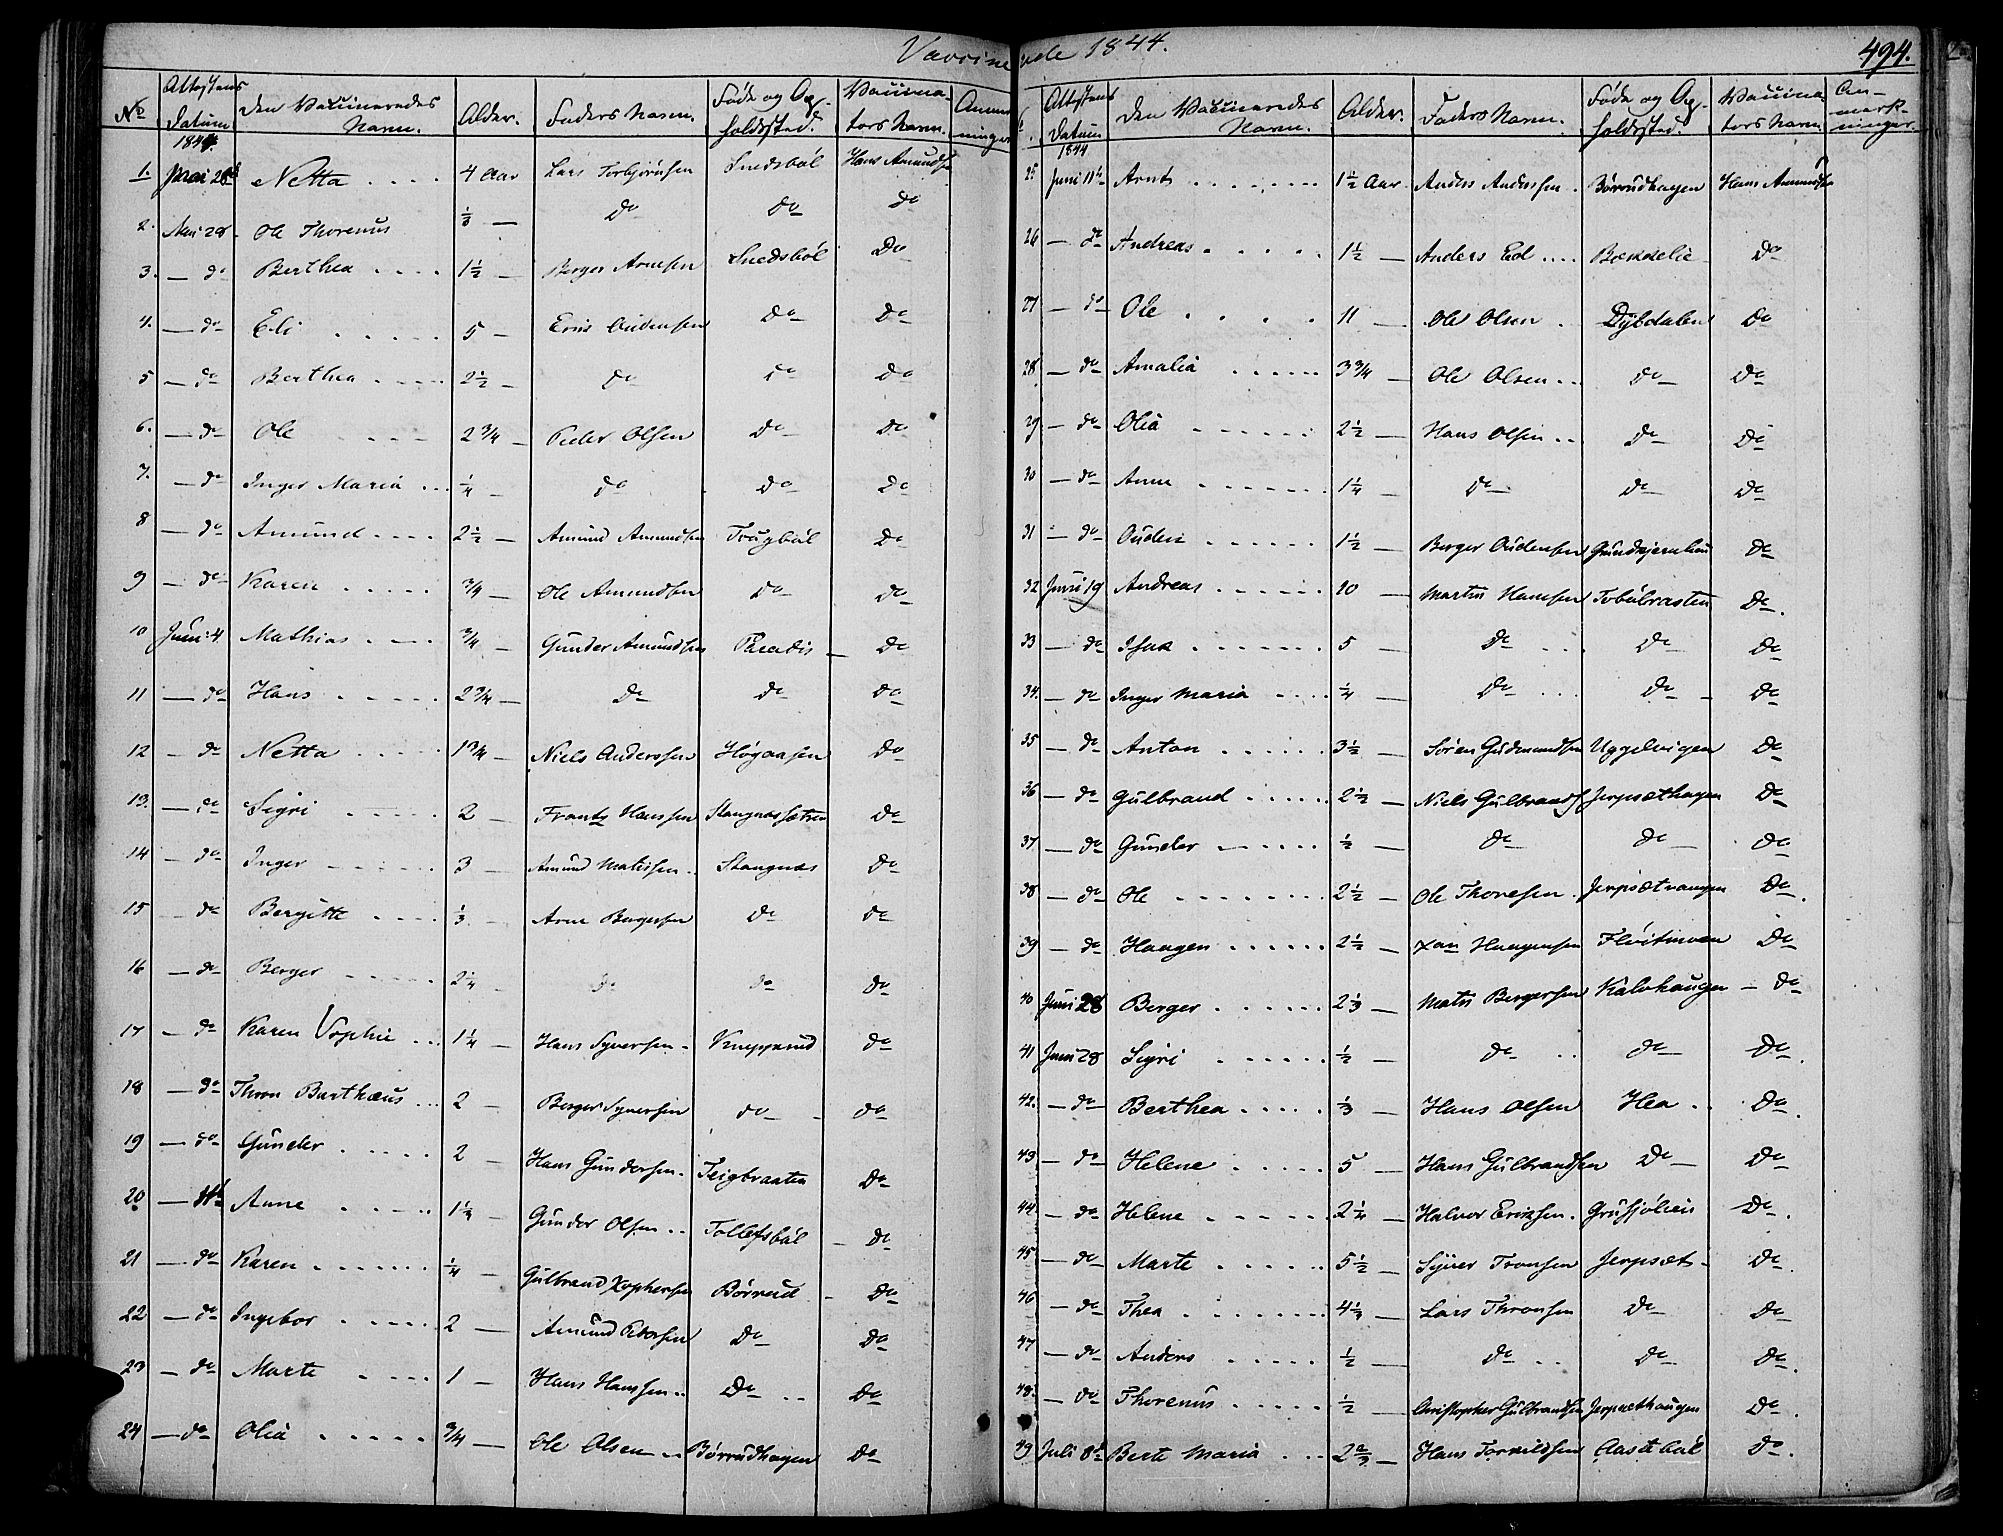 Vaccinerede 1844.
494.
No Attestens Datum Den Vaccineredes Navn. Alder. Faders Navn. Føde og Opholdssted. Vaccinators Navn. Anmærkninger
1844
1. Mai 28de Netta 4 Aar Lars Torbjörnsen Snedsböl Hans Amundsen
2. Mai 28 Ole Thorenus 1/2 — Do Do Do
3. — do Berthea 1 1/2 — Berger Arnesen Snedsböl Do
4. — do Eli 5 — Eric Oudensen Do Do
5 — do Berthea 2 1/2 — Do Do Do
6. — do Ole 2 3/4 — Peder Olsen Do Do
7. — do Inger Maria 1/4 — Do Do Do
8 — do Amund 2 1/2 — Amund Amundsen Trugböl Do
9 — do Karen 3/4 — Ole Amundsen Do Do
10 Juni 4 Mathias 3/4 — Gunder Amundsen Paradis — Do
11 — do Hans 2 3/4 — Do Do Do
12 — do Netta 1 3/4 — Niels Anderssen Högaasen Do
13. — do Sigri 2 — Frantz Hanssen Stangnessætren Do
14 — do Inger 3 — Amund Matissen Stangnes Do
15 — do Bergitte 1/3 Arne Bergersen Do Do
16 — do Berger 2 1/4 — Do Do Do
17 — do Karen Sophie 1 1/4 — Hans Syversen Knappsund Do
18 — do Thron Barthæus 2 — Berger Syversen do — do
19 — do Gunder 2 — Hans Gundersen Teigbraaten Do
20 — Anne 1 1/3 — Gunder Olsen Tollefsböl — Do
21 — do Karen 1/4 — Gulbrand Xophersen Börrud — Do
22 — do Ingebor 2 — Amund Pedersen Do Do
23 — do Marte 1 — Hans Hanssen Do Do
24 — do Olia 3/4 — Ole Olsen Börrudhagen Do
Attestens Datum Den Vaccineredes Navn. Alder. Faders Navn. Føde og Opholdssted. Vaccinators Navn. Anmærkninger.
1844
25 Juni 11te Arnt 1 1/2 Aar. Anders Anderssen Börrudhagen Hans Amundsen
26 — do Andreas 1 1/2 — Anders Ed Do
27 — do Ole 11 — Ole Olsen Dybdalen Do
28 — do Amalia 3 3/4 — Ole Olsen Do Do
29 — do Olia 2 1/2 — Hans Olsen Do Do
30 — do Anne 1 1/4 — Do Do Do
31 — do Ouden 1 1/2 — Berger Oudensen Do
32 Juni 19 Andreas 10 — Martin Hansen Tobölrasten Do.
33 — do Isak 5 — Do Do Do
34. — do Inger Maria 1/4 — Do Do Do
35 — do Anton 3 1/2 — Sören Gudmundsen Uggelvigen Do
36 — do Gulbrand 2 1/2 — Niels Gulbrands Jerpsethagen Do
37 — do Gunder 1/2 — Do Do Do
38 — do Ole 2 1/2 — Ole Thoresen Jerpsætvangen Do
39 — do Haagen 2 1/2 — Xan Haagensen Flöitmoen Do
40 Juni 28 Berger 2 1/3 — Matis Bergersen Kalvhaugen — Do
41 Juni 28 Sigri 1/2 — Do Do Do.
42. — do Berthea 1/3 — Hans Olsen Hea Do.
43 — do Helene 5 — Hans Gulbrandsen Do Do
44 — do Helene 2 1/4 — Halvor Ericksen Do.
45 — do Marte 5 1/2 — Syver Tronsen Jerpsæt Do.
46 — do Thea 4 1/3 — Lars Thronsen Do Do
47 — do Anders 1/2 — Do Do Do.
48. — do Thorenus 1/2 — Christopher Gulbrandsen Jerpsæthaugen Do.
49 Juli 8de Berte Maria 2 2/3 — Hans Torkildsen Do.